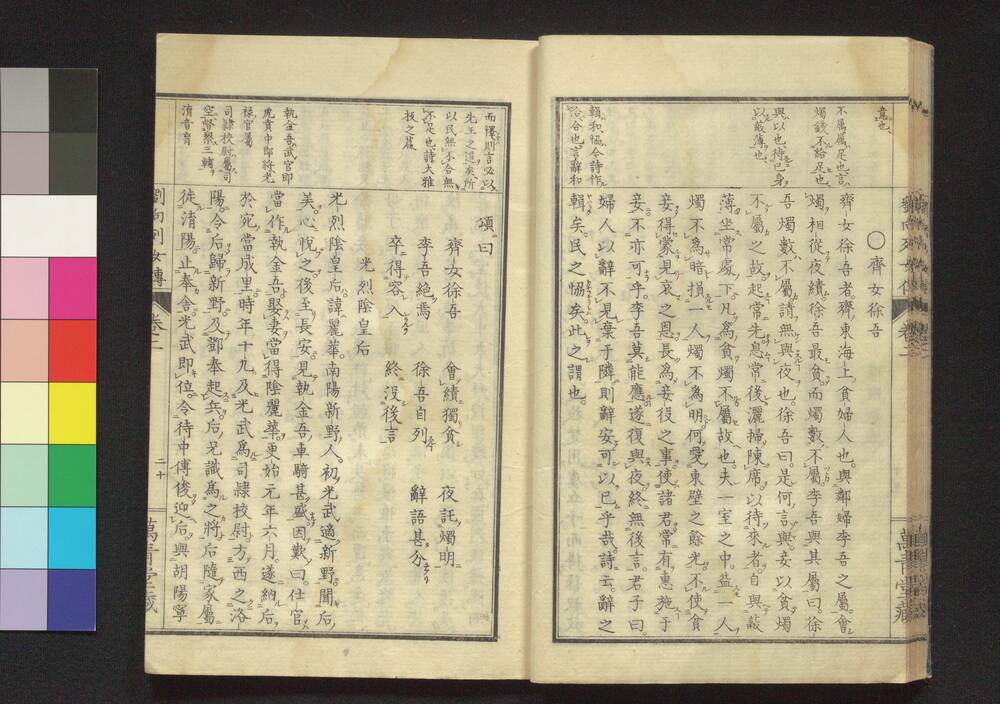 意也
不屬屬足也言
燭錢不給足也
與以也待已身
以蔽薄也
輯和恊合詩作
洽合也言辭和
○齊女徐吾
齊女徐吾者齊東海上貧婦人也與鄰婦李吾之屬會
燭相從夜績徐吾最貧而燭數不屬李吾與其屬曰徐
吾燭數不屬請無與夜也徐吾曰是何言與妾以貧燭
不屬之故起常先息常後灑掃陳席以待來者自與蔽
薄坐常處下凡爲貧燭不屬故也夫一室之中益一人
燭不爲暗損一人燭不爲明何愛東壁之餘光不使貧
妾得蒙見哀之恩長爲妾役之事使諸君常有惠施于
妾不亦可乎李吾莫能應遂復與夜終無後言君子曰
婦人以辭不見棄于隣則辭安可以已乎哉詩云辭之
輯矣民之恊矣此之謂也
而懌則言必以
先王之道矣所
以民無不合無
不足也詩大雅
板之篇
執金吾武官即
虎賁中郎將光
祿官屬
司隷校尉屬司
空督察三輔
淯音育
頌曰
齊女徐吾 會績獨貧 夜託燭明
李吾絶焉 徐吾自列 辭語甚分
卒得容入 終没後言
光烈陰皇后
光烈陰皇后諱麗華南陽新野人初光武適新野聞后
美心悅之後至長安見執金吾車騎甚盛因歎曰仕宦
當作執金吾娶妻當得陰麗華更始元年六月遂納后
於宛當成里時年十九及光武爲司隷校尉方西之洛
陽令后歸新野及鄧奉起兵后兄識爲之將后隨家屬
徙淯陽止奉舍光武即位令侍中傅俊迎后與胡陽寧
劉向列女傳 卷二 二十 萬青堂藏